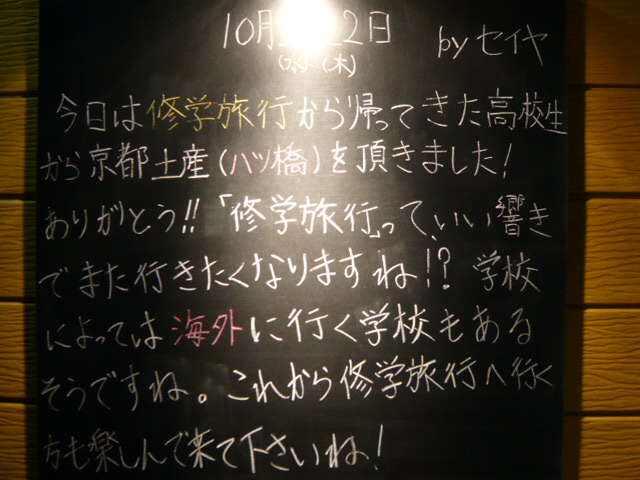 10月 2日 by セイヤ
(水)・(木)
今日は修学旅行から帰ってきた高校生
から京都土産(八ツ橋)を頂きました!
ありがとう!!「修学旅行」って、いい響き
でまた行きたくなりますね!? 学校
によっては海外に行く学校もある
そうですね。これから修学旅行へ行く
方も楽しんで来て下さいね!